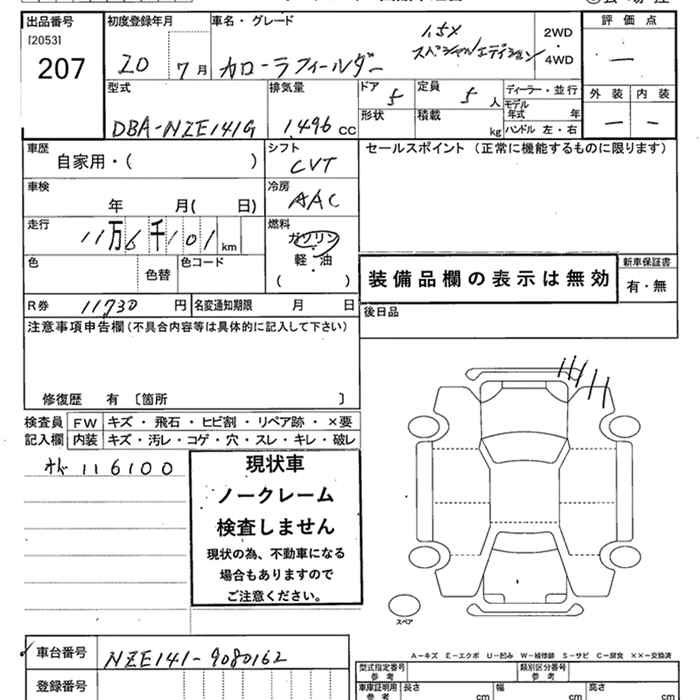 出品番号 初度登録年月 車名・グレード 評価点
[2053] 1.5X 2WD
207 20 7月 カローラフィールダー スペシャルエディション 4WD —
型式 排気量 ドア 5 定員 5人 ディーラー・並行 外装 内装
形状 積載 kg モデル年式 年 — —
DBA-NZE141G 1,496 cc ハンドル 左・右
車歴 シフト セールスポイント (正常に機能するものに限ります)
自家用・( ) CVT
車検 冷房
年 月( 日) AAC
走行 燃料
11万6千101 km ガソリン
色 色替 色コード 軽・油 装備品欄の表示は無効 新車保証書
( ) 有・無
R券 11730 円 名変通知期限 月 日 後日品
注意事項申告欄(不具合内容等は具体的に記入して下さい)
修復歴 有 〔箇所 〕
検査員 FW キズ・飛石・ヒビ割・リペア跡・×要
記入欄 内装 キズ・汚レ・コゲ・穴・スレ・キレ・破レ
オド 116100 現状車
ノークレーム
検査しません
現状の為、不動車になる
場合もありますので
ご注意ください。
スペア
車台番号 NZE141-9080162 A-キズ E-エクボ U-凹み W-補修跡 S-サビ C-腐食 ××-交換済
登録番号 型式指定番号 参考 類別区分番号 参考
車庫証明用 参考 長さ cm 幅 cm 高さ cm